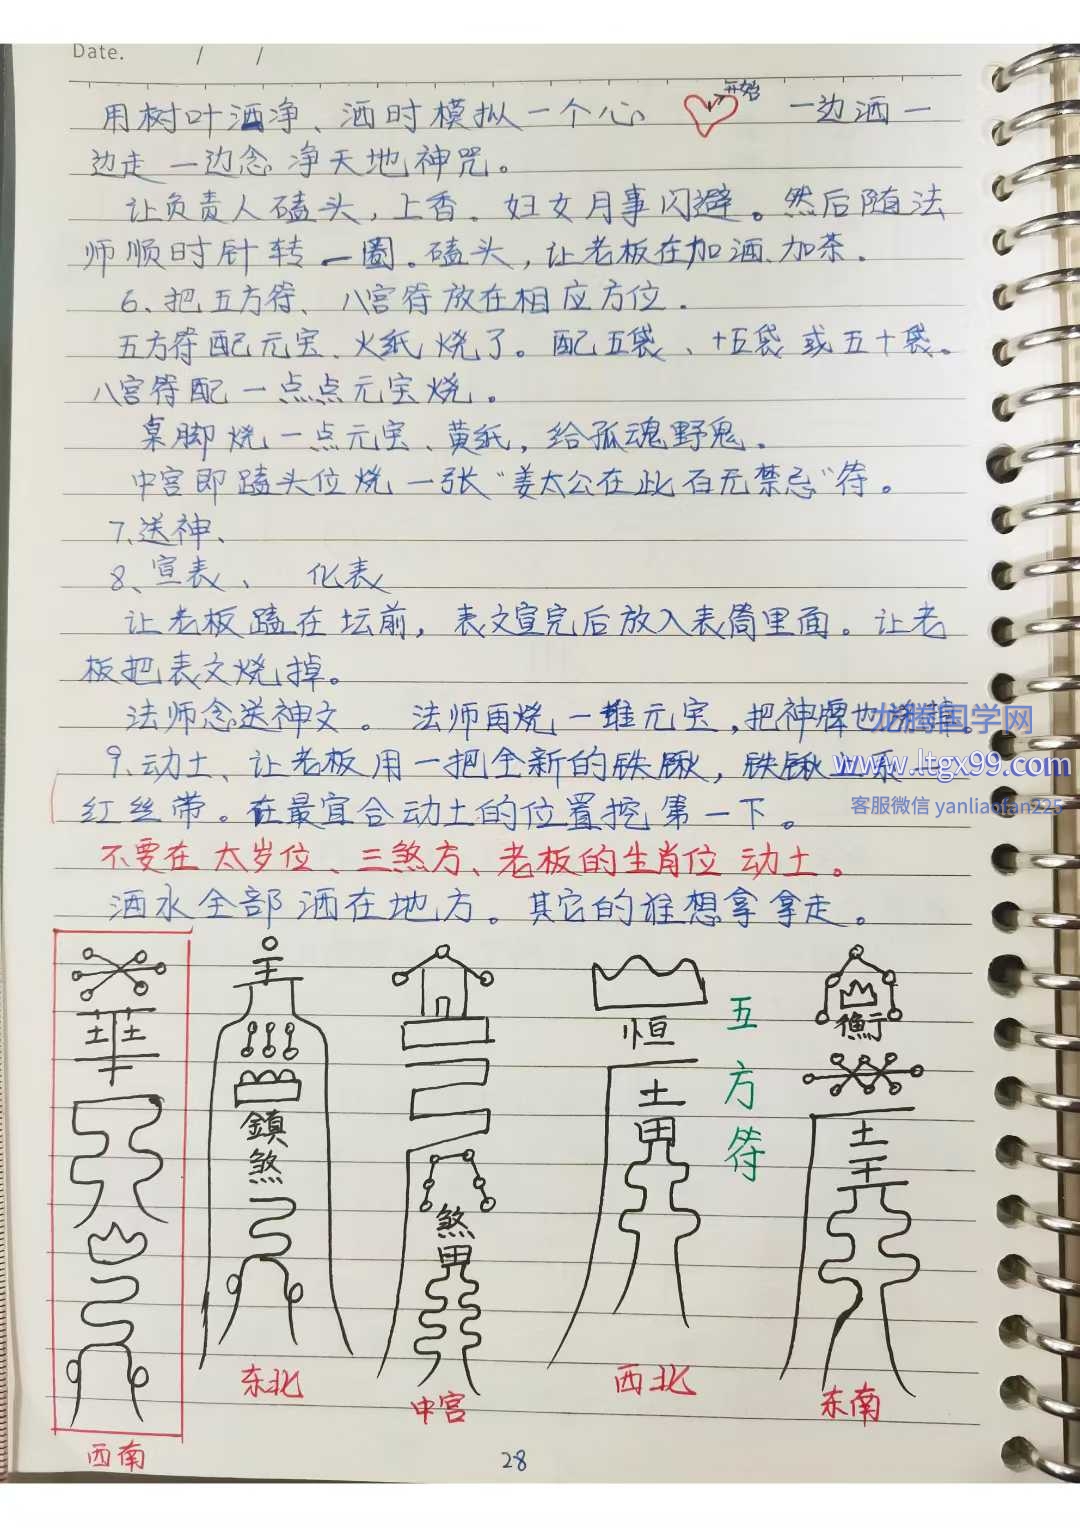 Date. / /
用树叶洒净、洒时模拟一个心 开始 一边洒一
边走 一边念 净天地神咒。
让负责人磕头,上香。妇女月事闪避。然后随法
师顺时针转一圈。磕头,让老板在加酒、加茶.
6、把五方符、八宫符放在相应方位.
五方符配元宝、火纸烧了。配五袋、十五袋或五十袋。
八宫符配一点点元宝烧。
桌脚烧一点元宝、黄纸,给孤魂野鬼.
中宫即磕头位烧一张"姜太公在此百无禁忌"符。
7、送神、
8、宣表、 化表
让老板磕在坛前,表文宣完后放入表筒里面。让老
板把表文烧掉。
法师念送神文。法师再烧一堆元宝,把神牌也烧掉。
龙腾国学网
9、动土、让老板用一把全新的铁锹,铁锹上系
www.ltgx99.com
红丝带。在最宜合动土的位置挖第一下。
客服微信 yanliaofan225
不要在太岁位、三煞方、老板的生肖位动土。
洒水全部洒在地方。其它的谁想拿拿走。
華
鎮
煞
煞
恒
衡
五
方
符
西南
东北
中宫
西北
东南
28